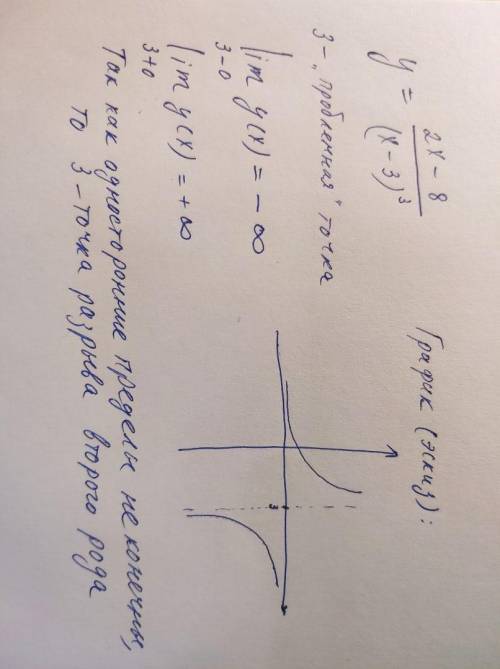 y = (2x - 8)/(x - 3)³
График (эскиз):
3 - „проблемная" точка
lim y(x) = - ∞
3-0
lim y(x) = + ∞
3+0
3
Так как односторонние пределы не конечны,
то 3 - точка разрыва второго рода